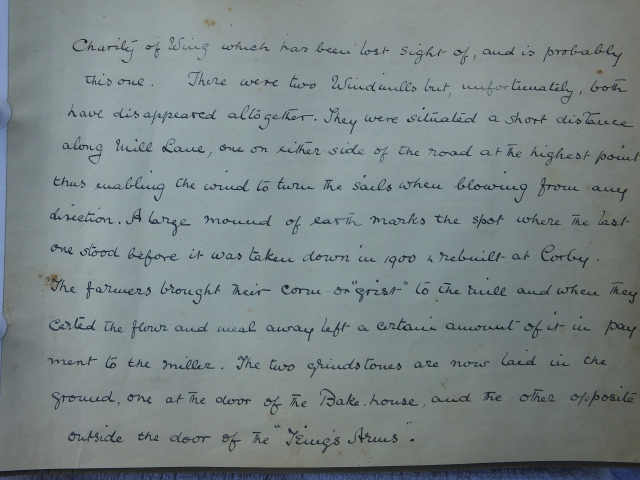 Charity of Wing which has been lost sight of, and is probably
this one. There were two Windmills but, unfortunately, both
have disappeared altogether. They were situated a short distance
along Mill Lane, one on either side of the road at the highest point
thus enabling the wind to turn the sails when blowing from any
direction. A large mound of earth marks the spot where the last
one stood before it was taken down in 1900 & rebuilt at Corby.
The farmers brought their corn or "grist" to the mill and when they
carted the flour and meal away left a certain amount of it in pay
ment to the miller. The two grindstones are now laid in the
ground, one at the door of the Bake-house, and the other opposite
outside the door of the "King's Arms".